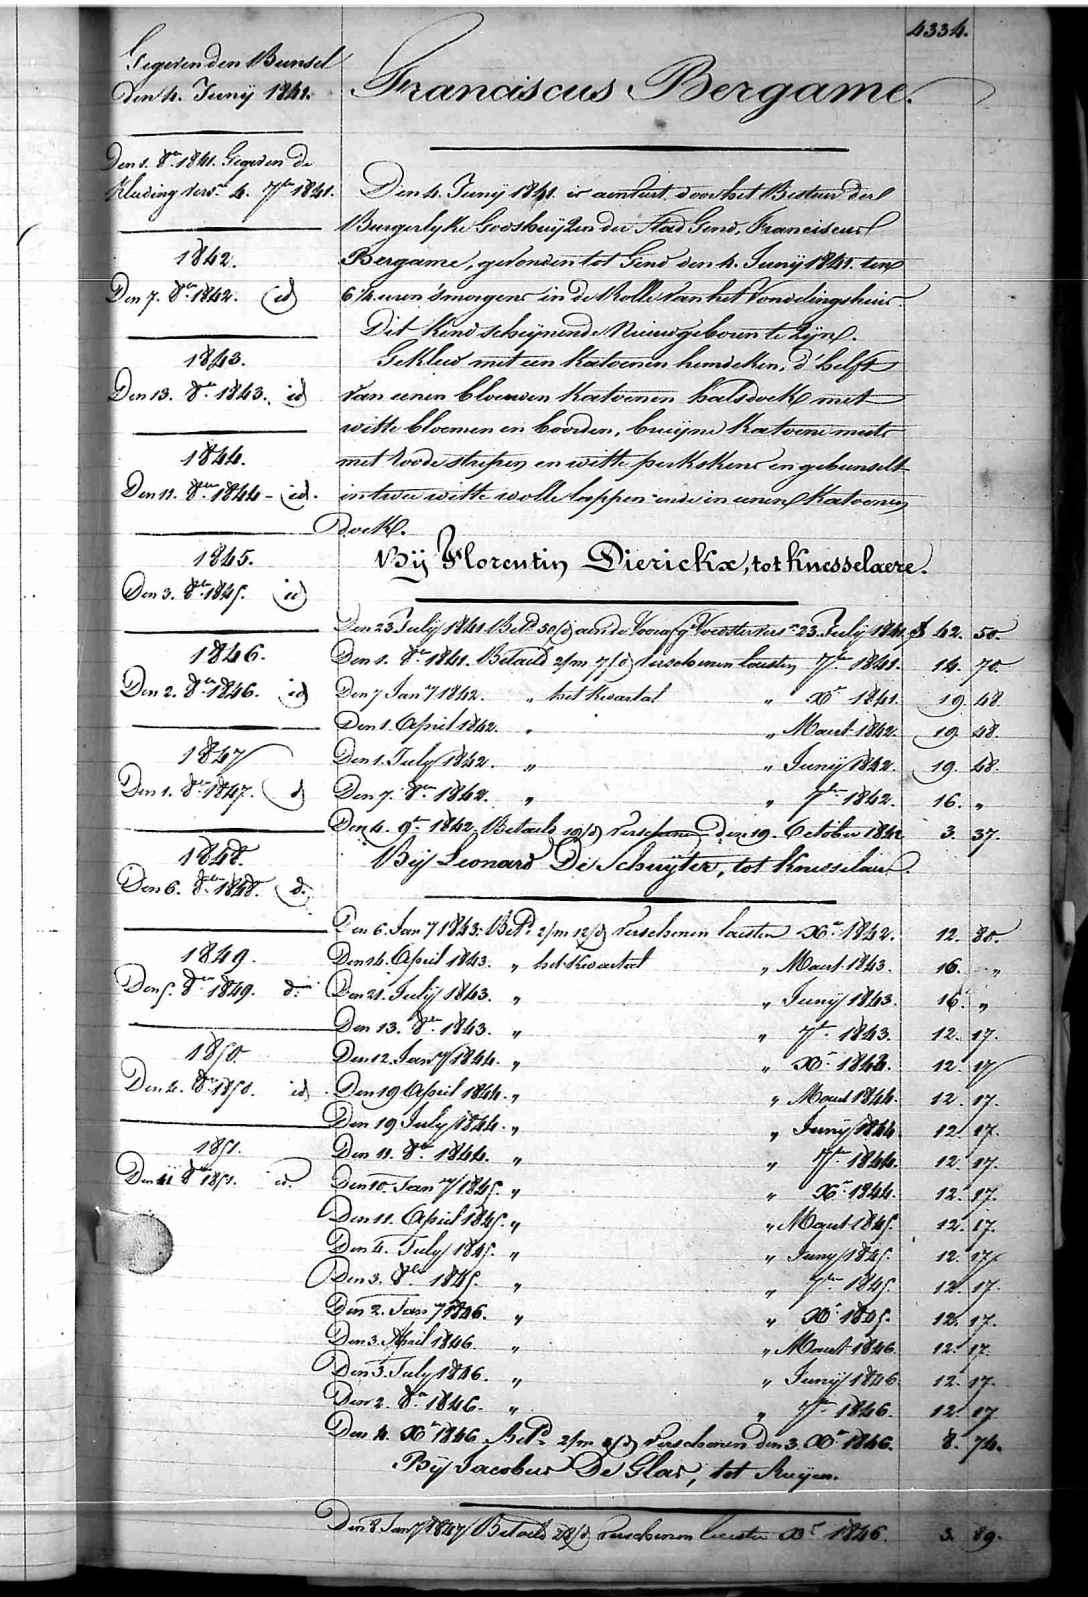 4334.
Gegeven den Bunsel
den 4. Junij 1841.
Franciscus Bergame.
Den 1. 8er 1841. Gegeven de
Kleding 4. 7ber 1841.
1842.
Den 7. 8er 1842. id
1843.
Den 13. 8er 1843. id
1844.
Den 11. 8ber 1844 - id.
1845.
Den 3. 8er 1845. id
1846.
Den 2. 8er 1846. id
1847
Den 1. 8er 1847. d
1848.
Den 6. 8er 1848. d:
1849.
Den 5. 8er 1849. d:
1850
Den 4. 8er 1850. id
1851.
Den 11 8er 1851. id.
Den 4. Junij 1841. is aenveert door het Bestuer der
Burgerlyke Godshuijzen der Stad Gend, Franciscus
Bergame, gevonden tot Gend den 4. Junij 1841. ten
6 1/4 uren 'smorgens in de Rolle van het Vondelingshuis.
Dit Kind schijnende Nieuwgeboren te zijn.
Gekleed met een Katoenen hemdeken, d'helft
van eenen blouwen Katoenen halsdoek met
witte bloemen en boorden, bruijne Katoene muts
met roode strepen en witte perkskens en gebunselt
in twee witte wolle lappen ende in eenen Katoenen
doek.
Bij Florentin Dierickx, tot Knesselaere.
Den 23 Julij 1841 Betd 50/d aen de Voorsterver 23 Julij 1841 f 42. 50.
Den 1. 8er 1841. Betaeld 2/m 7/d verschenen laesten 7ber 1841. 14. 70
Den 7 Jany 1842. „ het kwartal „ Xr 1841. 19 48.
Den 1. April 1842. „ „ Maert 1842. 19 48.
Den 1. July 1842. „ „ Junij 1842. 19. 48.
Den 7. 8er 1842. „ „ 7ber 1842. 16. „
Den 4. 9er 1842 Betaeld 19/d verschenen den 19. October 1842 3. 37.
Bij Leonard De Schuyter, tot Knesselaere.
Den 6. Jany 1843. Betd 2/m 12/d verschenen laesten Xr 1842. 12. 80.
Den 14. April 1843. „ het Kwartal „ Maert 1843. 16. „
Den 21. Julij 1843. „ „ Junij 1843. 16. „
Den 13. 8er 1843. „ „ 7r 1843. 12. 17.
Den 12. Jany 1844. „ „ Xr 1843. 12. 17
Den 19 April 1844. „ „ Maert 1844. 12. 17.
Den 19 July 1844. „ „ Junij 1844 12. 17.
Den 11. 8er 1844. „ „ 7r 1844. 12. 17.
Den 10. Jany 1845. „ „ Xr 1844. 12. 17.
Den 11. April 1845. „ „ Maert 1845. 12. 17.
Den 4. July 1845. „ „ Juny 1845. 12. 17.
Den 3. 8ber 1845. „ „ 7ber 1845. 12. 17.
Den 2. Jany 1846. „ „ Xr 1845. 12. 17.
Den 3. April 1846. „ „ Maert 1846 12. 17.
Den 3. July 1846. „ „ Junij 1846 12. 17.
Den 2. 8er 1846. „ „ 7ber 1846. 12. 17
Den 4. Xr 1846. Betd 2/m 3/d verschenen den 3. Xr 1846. 8. 74.
Bij Jacobus De Glas, tot
Den 8. Jany 1847 Betaeld 28/d verschenen laesten Xr 1846 3. 89.